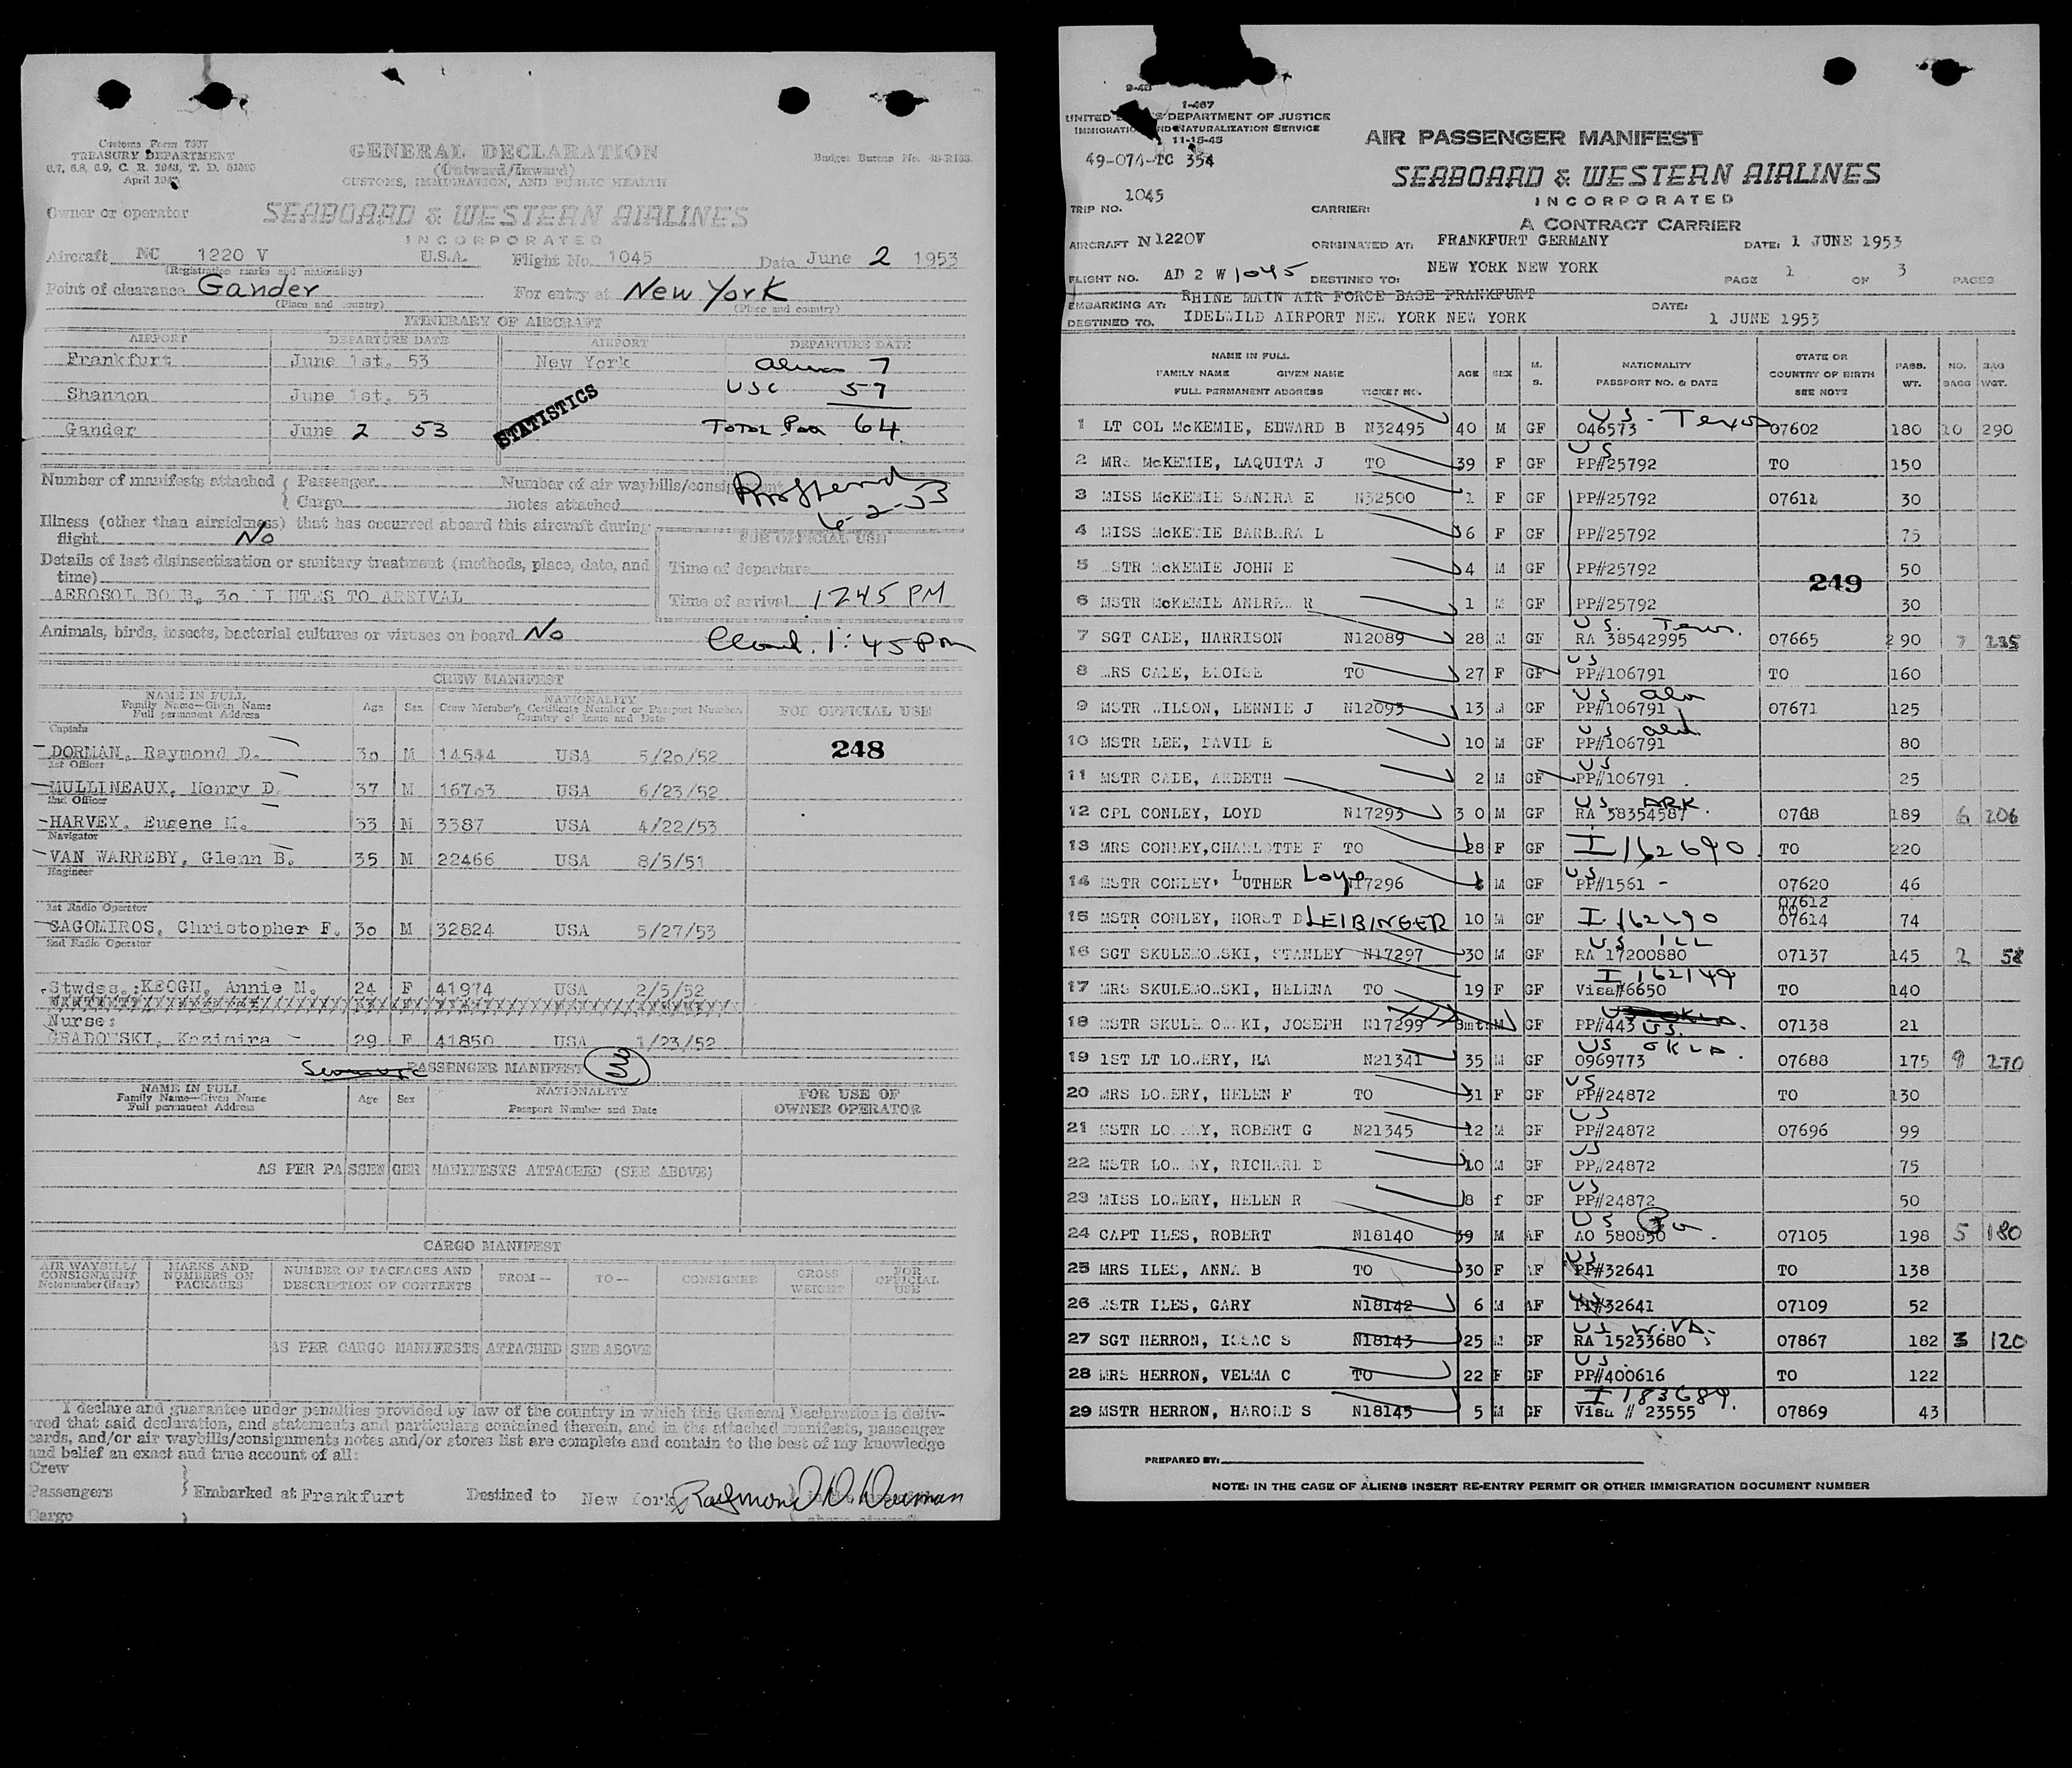 Customs Form 7507
TREASURY DEPARTMENT
6.7, 6.8, 6.9, C. R. 1943, T. D.
April
GENERAL DECLARATION
(Outward/Inward)
CUSTOMS, IMMIGRATION, AND PUBLIC HEALTH
Budget Bureau No.
Owner or operator SEABOARD & WESTERN AIRLINES
INCORPORATED
Aircraft NC 1220 V U.S.A. Flight No. 1045 Date June 2 1953
(Registration marks and nationality)
Point of clearance Gander For entry at New York
(Place and country) (Place and country)
ITINERARY OF AIRCRAFT
AIRPORT DEPARTURE DATE AIRPORT DEPARTURE DATE
Frankfurt June 1st. 53 New York Aliens 7
Shannon June 1st. 53 USC 57
STATISTICS
Gander June 2 53 Total Pax 64.
Number of manifests attached { Passenger Number of air waybills/consignment
{ Cargo notes attached
6-2-53
Illness (other than airsickness) that has occurred aboard this aircraft during
flight No
FOR OFFICIAL USE
Details of last disinsectization or sanitary treatment (methods, place, date, and
time)
Time of departure
AEROSOL BOMB, 30 MINUTES TO ARRIVAL
Time of arrival 1245 PM
Animals, birds, insects, bacterial cultures or viruses on board No
1:45 PM
CREW MANIFEST
NAME IN FULL
Family Name—Given Name
Full permanent Address
Age Sex NATIONALITY
Crew Member's Certificate Number or Passport Number,
Country of Issue and Date
FOR OFFICIAL USE
Captain
DORMAN, Raymond D. 30 M 14544 USA 5/20/52
248
1st Officer
MULLINEAUX, Henry D. 37 M 16703 USA 6/23/52
2nd Officer
HARVEY, Eugene M. 33 M 3387 USA 4/22/53
Navigator
VAN WARREBY, Glenn B. 35 M 22466 USA 8/5/51
Engineer
1st Radio Operator
SAGOMIROS, Christopher F. 30 M 32824 USA 5/27/53
2nd Radio Operator
Stwdss.:KEOGH, Annie M. 24 F 41974 USA 2/5/52
Nurse:
GRADOWSKI, Kazimira 29 F 41850 USA 1/23/52
PASSENGER MANIFEST
NAME IN FULL
Family Name—Given Name
Full permanent Address
Age Sex NATIONALITY
Passport Number and Date
FOR USE OF
OWNER OPERATOR
AS PER PASSENGER MANIFESTS ATTACHED (SEE ABOVE)
CARGO MANIFEST
AIR WAYBILL/
CONSIGNMENT
Note number (if any)
MARKS AND
NUMBERS ON
PACKAGES
NUMBER OF PACKAGES AND
DESCRIPTION OF CONTENTS
FROM— TO— CONSIGNEE GROSS
WEIGHT
FOR
OFFICIAL
USE
AS PER CARGO MANIFESTS ATTACHED SEE ABOVE
I declare and guarantee under penalties provided by law of the country in which this General Declaration is deliv-
ered that said declaration, and statements and particulars contained therein, and in the attached manifests, passenger
cards, and/or air waybills/consignments notes and/or stores list are complete and contain to the best of my knowledge
and belief an exact and true account of all:
Crew
Passengers } Embarked at Frankfurt Destined to New York Raymond D Dorman
Cargo
above aircraft
1-467
UNITED DEPARTMENT OF JUSTICE
IMMIGRATION AND NATURALIZATION SERVICE
11-15-45
49-074-TC 354
AIR PASSENGER MANIFEST
SEABOARD & WESTERN AIRLINES
INCORPORATED
A CONTRACT CARRIER
TRIP NO. 1045 CARRIER:
AIRCRAFT N 1220V ORIGINATED AT: FRANKFURT GERMANY DATE: 1 JUNE 1953
FLIGHT NO. AD 2 W 1045 DESTINED TO: NEW YORK NEW YORK PAGE 1 OF 3 PAGES
EMBARKING AT: RHINE MAIN AIR FORCE BASE FRANKFURT DATE:
DESTINED TO. IDELWILD AIRPORT NEW YORK NEW YORK 1 JUNE 1953
NAME IN FULL
FAMILY NAME GIVEN NAME
FULL PERMANENT ADDRESS TICKET NO.
AGE SEX M. S. NATIONALITY
PASSPORT NO. & DATE
STATE OR
COUNTRY OF BIRTH
SEE NOTE
PASS. WT. NO. BAGG BAG WGT.
US - Texas
1 LT COL McKEMIE, EDWARD B N32495 40 M GF 046573 07602 180 10 290
US
2 MRS McKEMIE, LAQUITA J TO 39 F GF PP#25792 TO 150
3 MISS McKEMIE SANDRA E N32500 1 F GF PP#25792 07611 30
4 MISS McKEMIE BARBARA L 6 F GF PP#25792 75
5 MSTR McKEMIE JOHN E 4 M GF PP#25792 50
249
6 MSTR McKEMIE ANDREW R 1 M GF PP#25792 30
US. Texas.
7 SGT CADE, HARRISON N12089 28 M GF RA 38542995 07665 290 7 235
US
8 MRS CADE, ELOISE TO 27 F GF PP#106791 TO 160
US ala
9 MSTR WILSON, LENNIE J N12093 13 M GF PP#106791 07671 125
US ala
10 MSTR LEE, DAVID E 10 M GF PP#106791 80
US
11 MSTR CADE, ARDETH 2 M GF PP#106791 25
US. ARK.
12 CPL CONLEY, LOYD N17293 30 M GF RA 38354587 07618 189 6 206
13 MRS CONLEY, CHARLOTTE F TO 28 F GF I 162690. TO 220
US
14 MSTR CONLEY, LUTHER Loyd N17296 M GF PP#1561 - 07620 46
07612
15 MSTR CONLEY, HORST D LEIBINGER 10 M GF I. 162690 07614 74
US ILL
16 SGT SKULEMOWSKI, STANLEY N17297 30 M GF RA 17200880 07137 145 2 58
I 162149
17 MRS SKULEMOWSKI, HELENA TO 19 F GF Visa#6650 TO 140
18 MSTR SKULEMOWSKI, JOSEPH N17299 8mts M GF PP#443 US. 07138 21
US OKLA.
19 1ST LT LOWERY, HA N21341 35 M GF 0969773 07688 175 9 270
US
20 MRS LOWERY, HELEN F TO 31 F GF PP#24872 TO 130
US
21 MSTR LOWERY, ROBERT G N21345 12 M GF PP#24872 07696 99
US
22 MSTR LOWERY, RICHARD D 10 M GF PP#24872 75
US
23 MISS LOWERY, HELEN R 8 f GF PP#24872 50
US Pa
24 CAPT ILES, ROBERT N18140 39 M AF AO 580850 07105 198 5 180
US
25 MRS ILES, ANNA B TO 30 F AF PP#32641 TO 138
US
26 MSTR ILES, GARY N18142 6 M AF PP#32641 07109 52
US W.VA.
27 SGT HERRON, ISSAC S N18143 25 M GF RA 15233680 07867 182 3 120
US.
28 MRS HERRON, VELMA C TO 22 F GF PP#400616 TO 122
I 183689.
29 MSTR HERRON, HAROLD S N18145 5 M GF Visa # 23555 07869 43
PREPARED BY:
NOTE: IN THE CASE OF ALIENS INSERT RE-ENTRY PERMIT OR OTHER IMMIGRATION DOCUMENT NUMBER